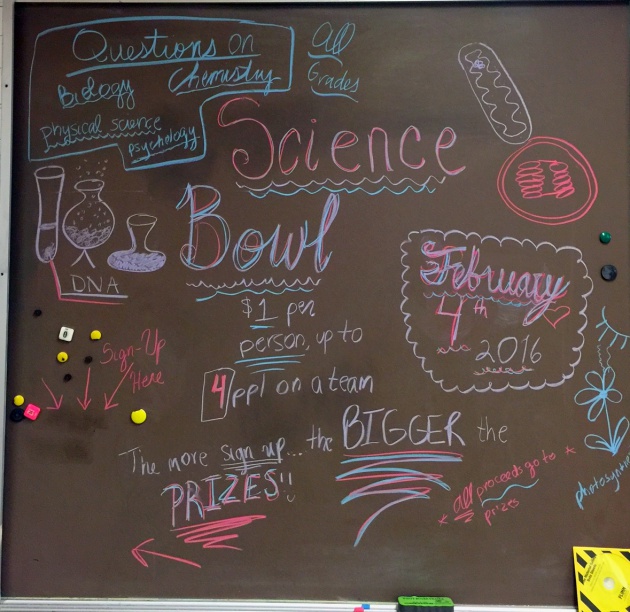 Questions on
Biology Chemistry
physical science
psychology
All
Grades
Science
Bowl
DNA
February
4th
2016
$1 per
person, up to
4 ppl on a team
Sign-Up
Here
The more sign up... the BIGGER the
PRIZES!!
* All proceeds go to *
prizes